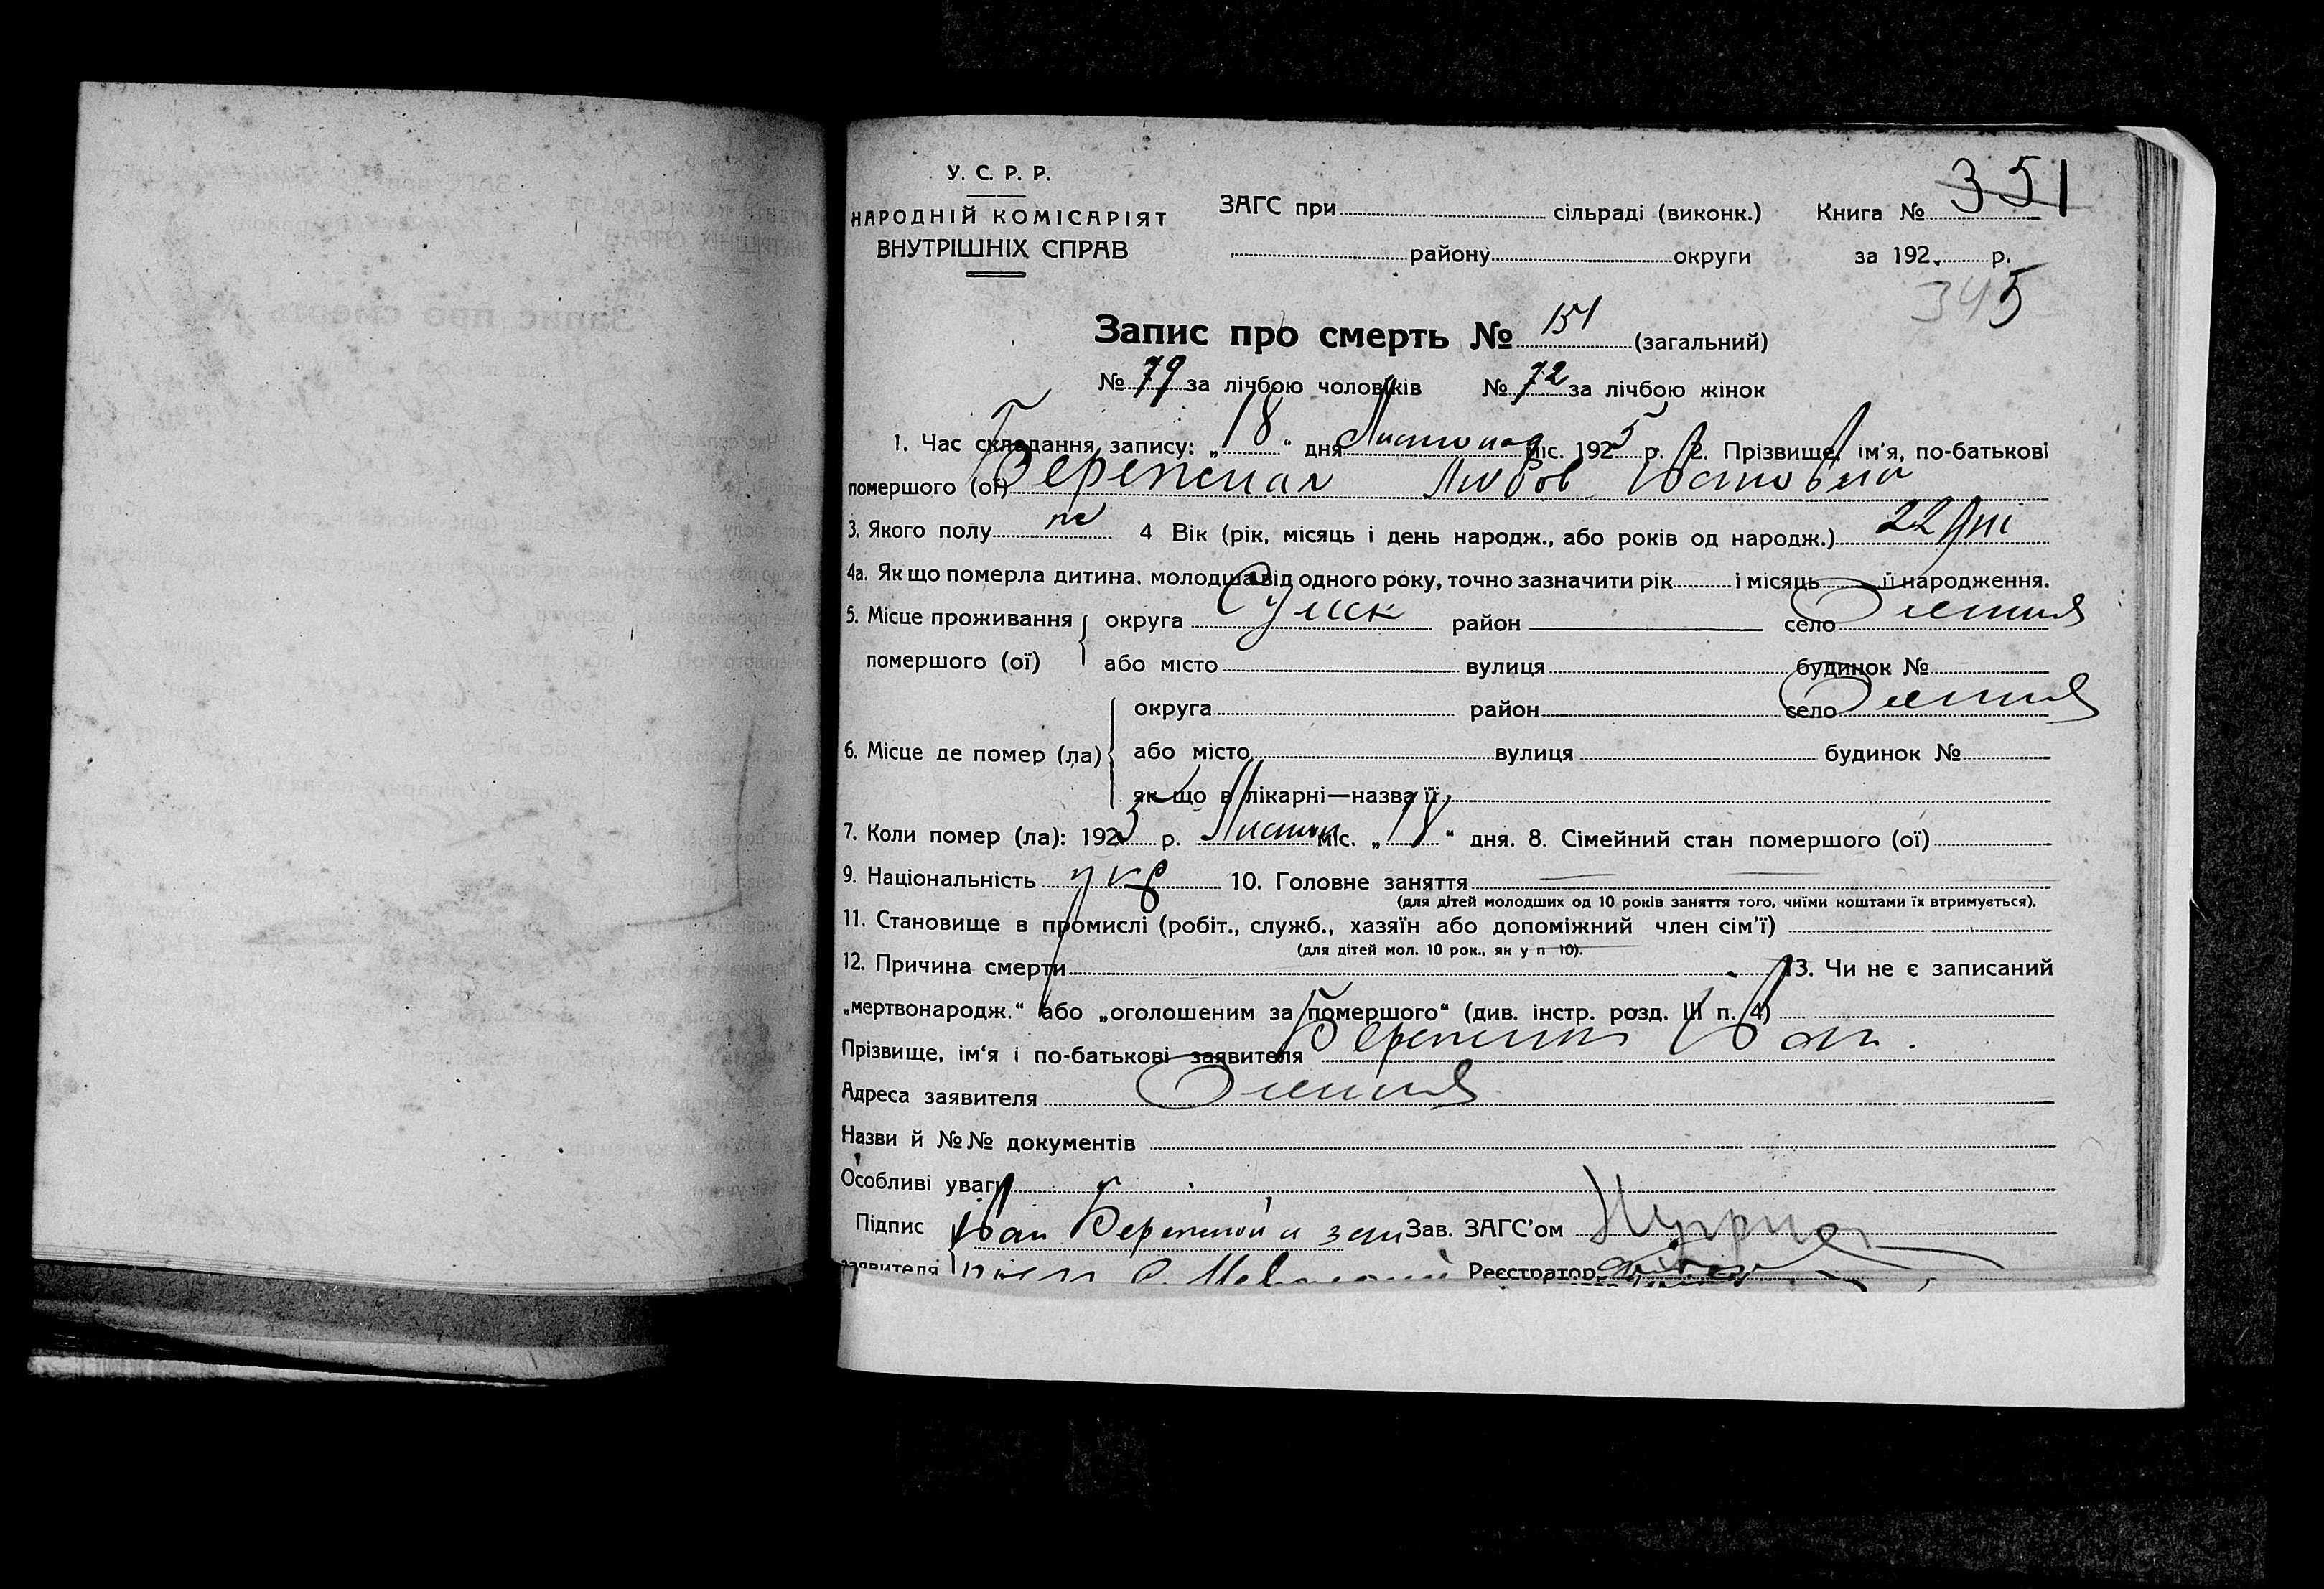 У. С. Р. Р.
НАРОДНІЙ КОМІСАРІЯТ
ВНУТРІШНІХ СПРАВ
ЗАГС при сільраді (виконк.) Книга № 351
району округи за 192 р.
345
Запис про смерть № 151 (загальний)
№ 79 за лічбою чоловіків № 72 за лічбою жінок
1. Час складання запису: „18“ дня Листопад міс. 1925 р. 2. Прізвище, ім’я, по-батькові
помершого (ої) Любов
3. Якого полу 4 Вік (рік, місяць і день народж., або років од народж.) 22 дні
4а. Як що померла дитина, молодша від одного року, точно зазначити рік і місяць її народження.
5. Місце проживання округа Сумск район село
помершого (ої) або місто вулиця будинок №
округа район село
6. Місце де помер (ла) або місто вулиця будинок №
як що в лікарні—назва її
7. Коли помер (ла): 1925 р. Листоп міс. „ “ дня. 8. Сімейний стан помершого (ої)
9. Національність укр 10. Головне заняття
(для дітей молодших од 10 років заняття того, чиїми коштами їх втримується).
11. Становище в промислі (робіт., служб., хазяїн або допоміжний член сім’ї)
(для дітей мол. 10 рок., як у п 10).
12. Причина смерти 13. Чи не є записаний
„мертвонародж.“ або „оголошеним за помершого“ (див. інстр. розд. III п. 4)
Прізвище, ім‘я і по-батькові заявителя
Адреса заявителя
Назви й №№ документів
Особливі уваги
Підпис Іван Зав. ЗАГС’ом
заявителя Реєстратор